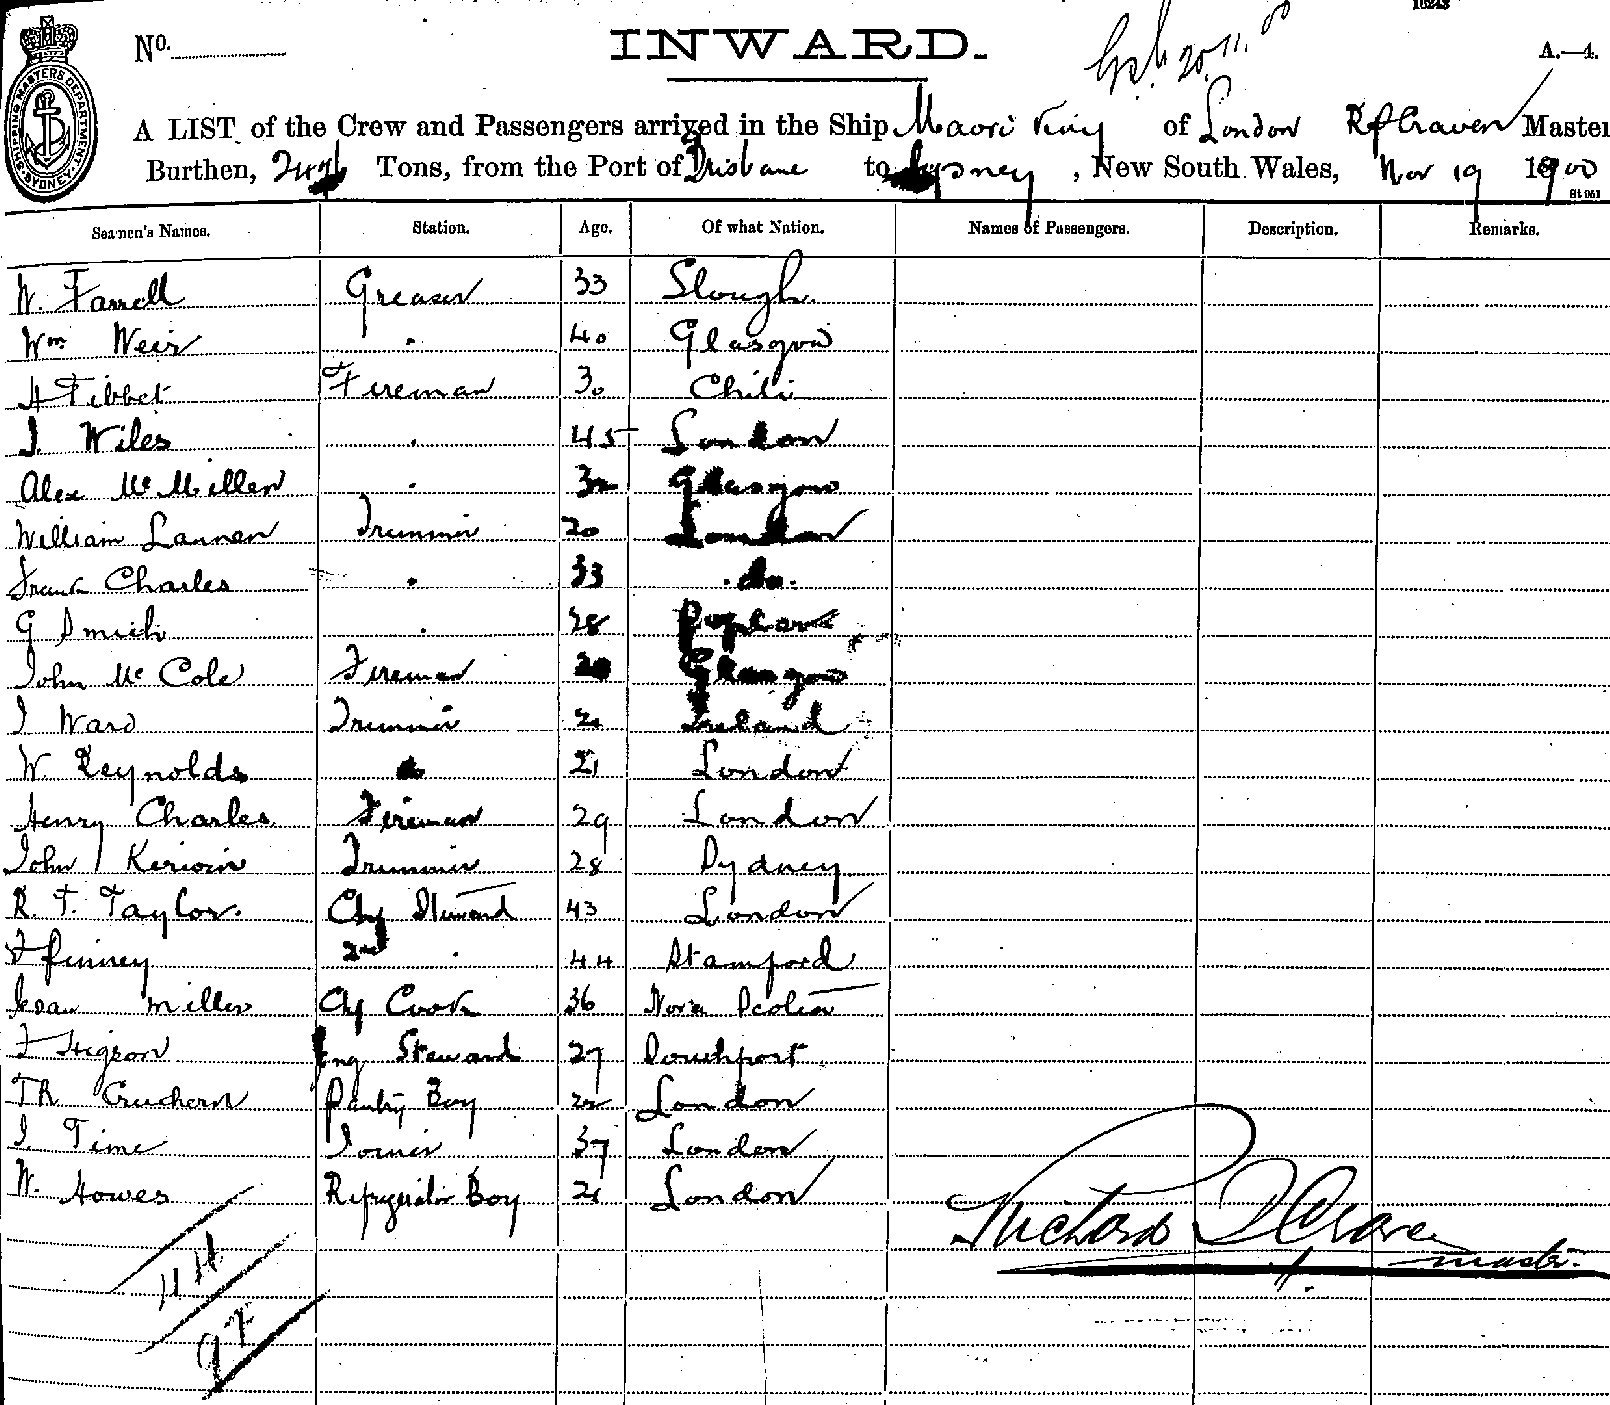 No.
INWARD.
A.—4.
SHIPPING MASTERS DEPARTMENT SYDNEY
A LIST of the Crew and Passengers arrived in the Ship Maori King of London R Craven Master
Burthen, Tons, from the Port of Brisbane to Sydney, New South Wales, Nov 19 1900
Seamen's Names. Station. Age. Of what Nation. Names of Passengers. Description. Remarks.
W. Farrell Greaser 33 Slough
Wm Weir " 40 Glasgow
H Tibbet Fireman 30 Chili
J. Wiles " 45 London
Alex Mc Millen " 32 Glasgow
William Lannen Trimmer 20 London
Frank Charles " 33 do.
G Smith " 28 Poplar
John Mc Cole Fireman Glasgow
J Ward Trimmer 21 Ireland
W. Reynolds 21 London
Henry Charles Fireman 29 London
John Kerwin Trimmer 28 Sydney
R. F. Taylor. Chf Steward 43 London
F Pinney 2nd " 44 Stamford
Isaac Miller Chf Cook 36 Nova Scotia
F Higson Eng Steward 27 Southport
Pantry Boy 22 London
J. Time Joiner 37 London
W. Howes Refrigerator Boy 21 London
Richard Craven
master.